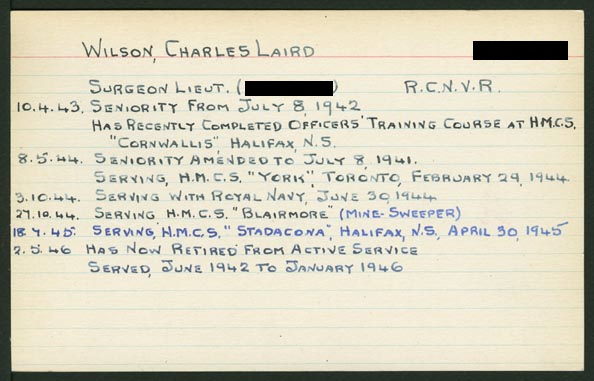 WILSON, CHARLES LAIRD
SURGEON LIEUT. ( ) R.C.N.V.R.
10.4.43. SENIORITY FROM JULY 8, 1942
HAS RECENTLY COMPLETED OFFICERS' TRAINING COURSE AT H.M.C.S.
"CORNWALLIS", HALIFAX, N.S.
8.5.44. SENIORITY AMENDED TO JULY 8, 1941.
SERVING, H.M.C.S. "YORK", TORONTO, FEBRUARY 29, 1944
3.10.44. SERVING WITH ROYAL NAVY, JUNE 30, 1944
27.10.44. SERVING H.M.C.S. "BLAIRMORE" (MINE-SWEEPER)
18.7.45. SERVING, H.M.C.S. "STADACONA", HALIFAX, N.S. APRIL 30, 1945
2.5.46 HAS NOW RETIRED FROM ACTIVE SERVICE
SERVED, JUNE 1942 TO JANUARY 1946